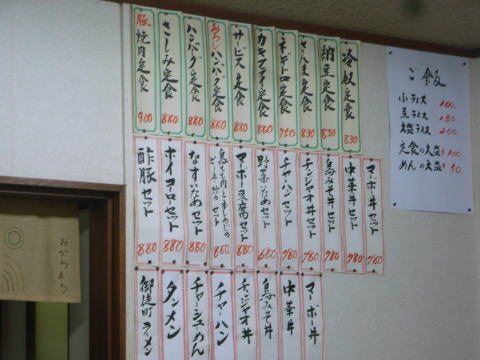 冷奴定食 830
納豆定食 830
さんま定食 830
ネギトロ定食 750
カキフライ定食 880
サービス定食 880
おろしハンバーグ定食 880
ハンバーグ定食 880
さしみ定食 880
豚焼肉定食 900
マーボ丼セット 780
中華丼セット 780
鳥みそ丼セット 780
チンジャオ丼セット 780
チャーハンセット 780
野菜いためセット 680
マーボー豆腐セット 880
なすいためセット 880
ホイコーローセット 880
酢豚セット 880
マーボー丼
中華丼
鳥みそ丼
チンジャオ丼
チャーハン
チャーシュウめん
タンメン
御徒町ラーメン
ご飯
小ライス 100.
豆ライス 150
大盛ライス 200
定食の大盛+100
めんの大盛+50